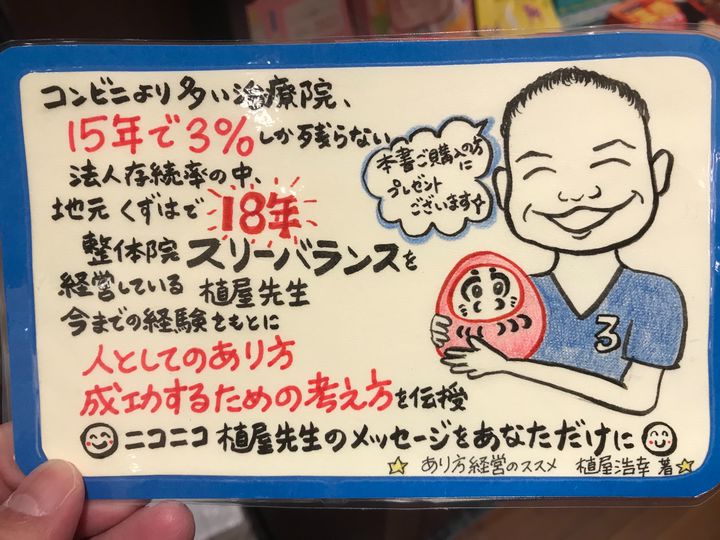 コンビニより多い治療院、
15年で3%しか残らない
法人存続率の中、
地元くずはで18年
整体院スリーバランスを
経営している 植屋先生
今までの経験をもとに
人としてのあり方
成功するための考え方を伝授
ニコニコ植屋先生のメッセージをあなただけに
☆あり方経営のススメ 植屋浩幸 著☆
本書ご購入の方
に
プレゼント
ございます☆
3